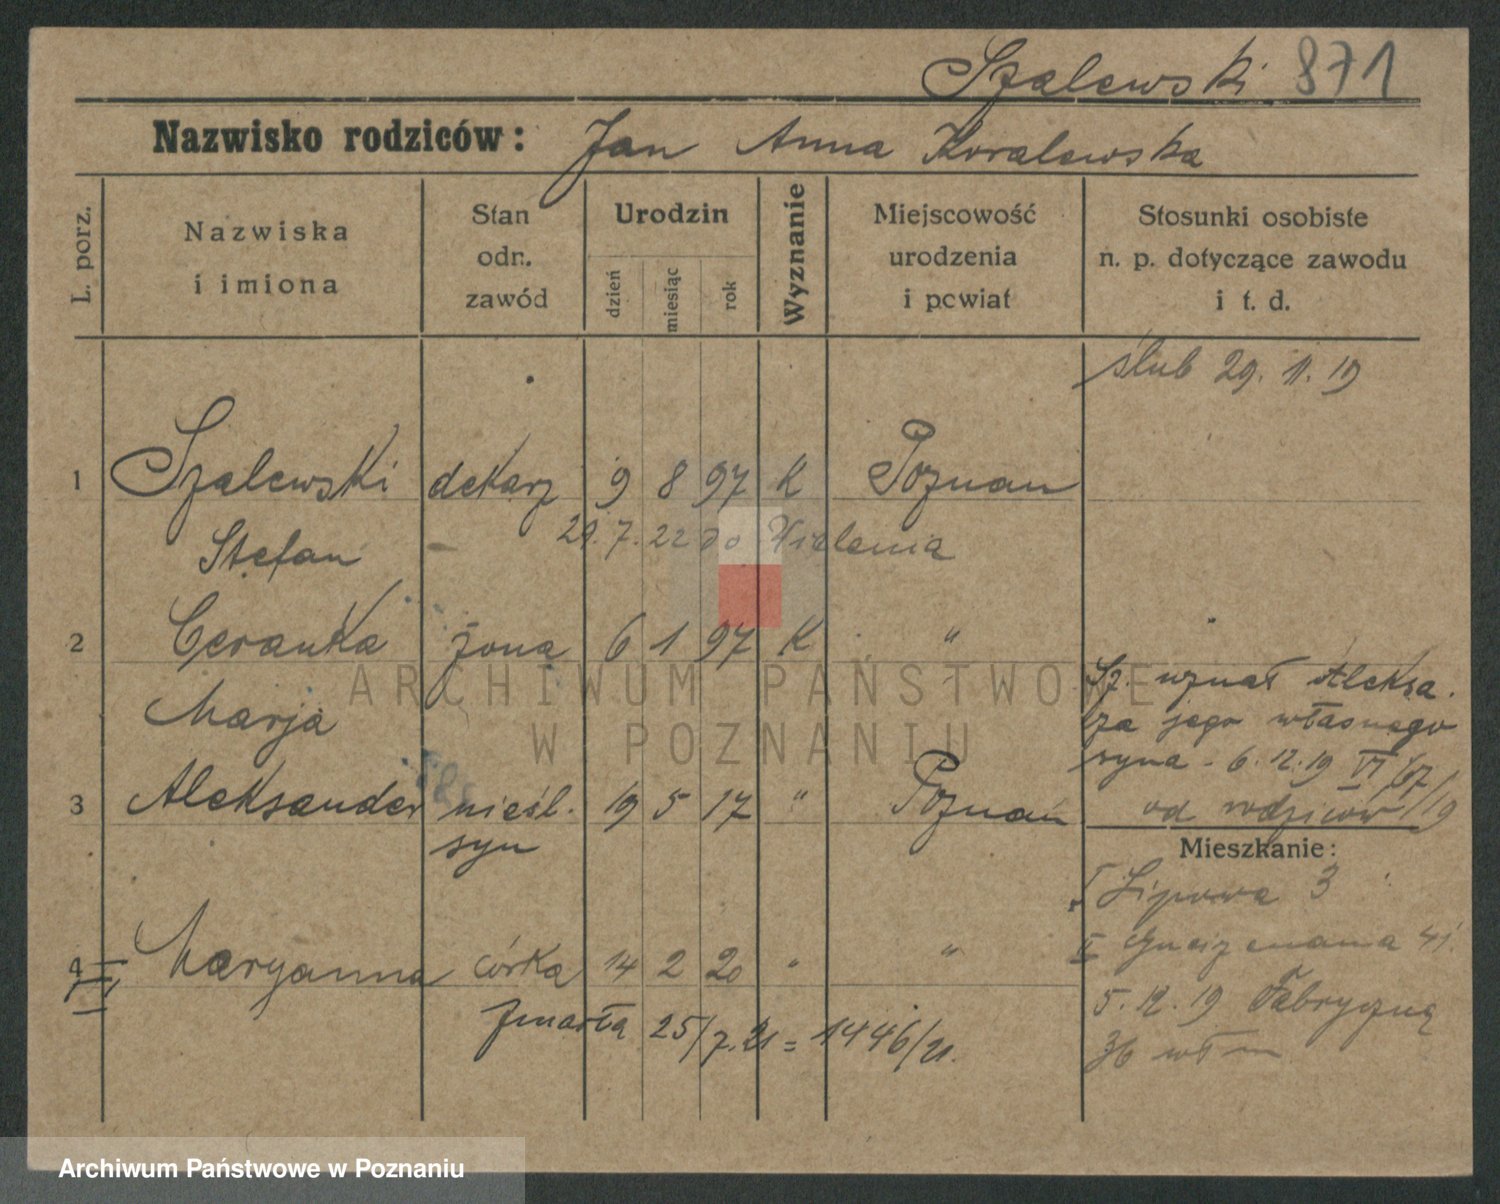 Szalewski 871
Nazwisko rodziców: Jan Anna Koralewska
L. porz.
Nazwiska
i imiona
Stan
odn.
zawód
Urodzin
dzień
miesiąc
rok
Wyznanie
Miejscowość
urodzenia
i powiat
Stosunki osobiste
n. p. dotyczące zawodu
i t. d.
ślub 29. 11. 19
1 Szalewski dekarz 9 8 97 K Poznan
Stefan 29. 7. 22 do Wielenia
2 Ceranka żona 6 1 97 K "
Marja
Sz. uznał Aleksa.
za jego własnego
syna - 6. 12. 19 VI/67/19
od rodziców
3 Aleksander nieśl. 19 5 17 " Poznań
syn
4 Maryanna córka 14 2 20 " "
zmarła 25/7. 21 = 1446/21.
Mieszkanie:
I Lipowa 3
II 41.
5. 12. 19 Fabryczna
36
ARCHIWUM PAŃSTWOWE
W POZNANIU
Archiwum Państwowe w Poznaniu